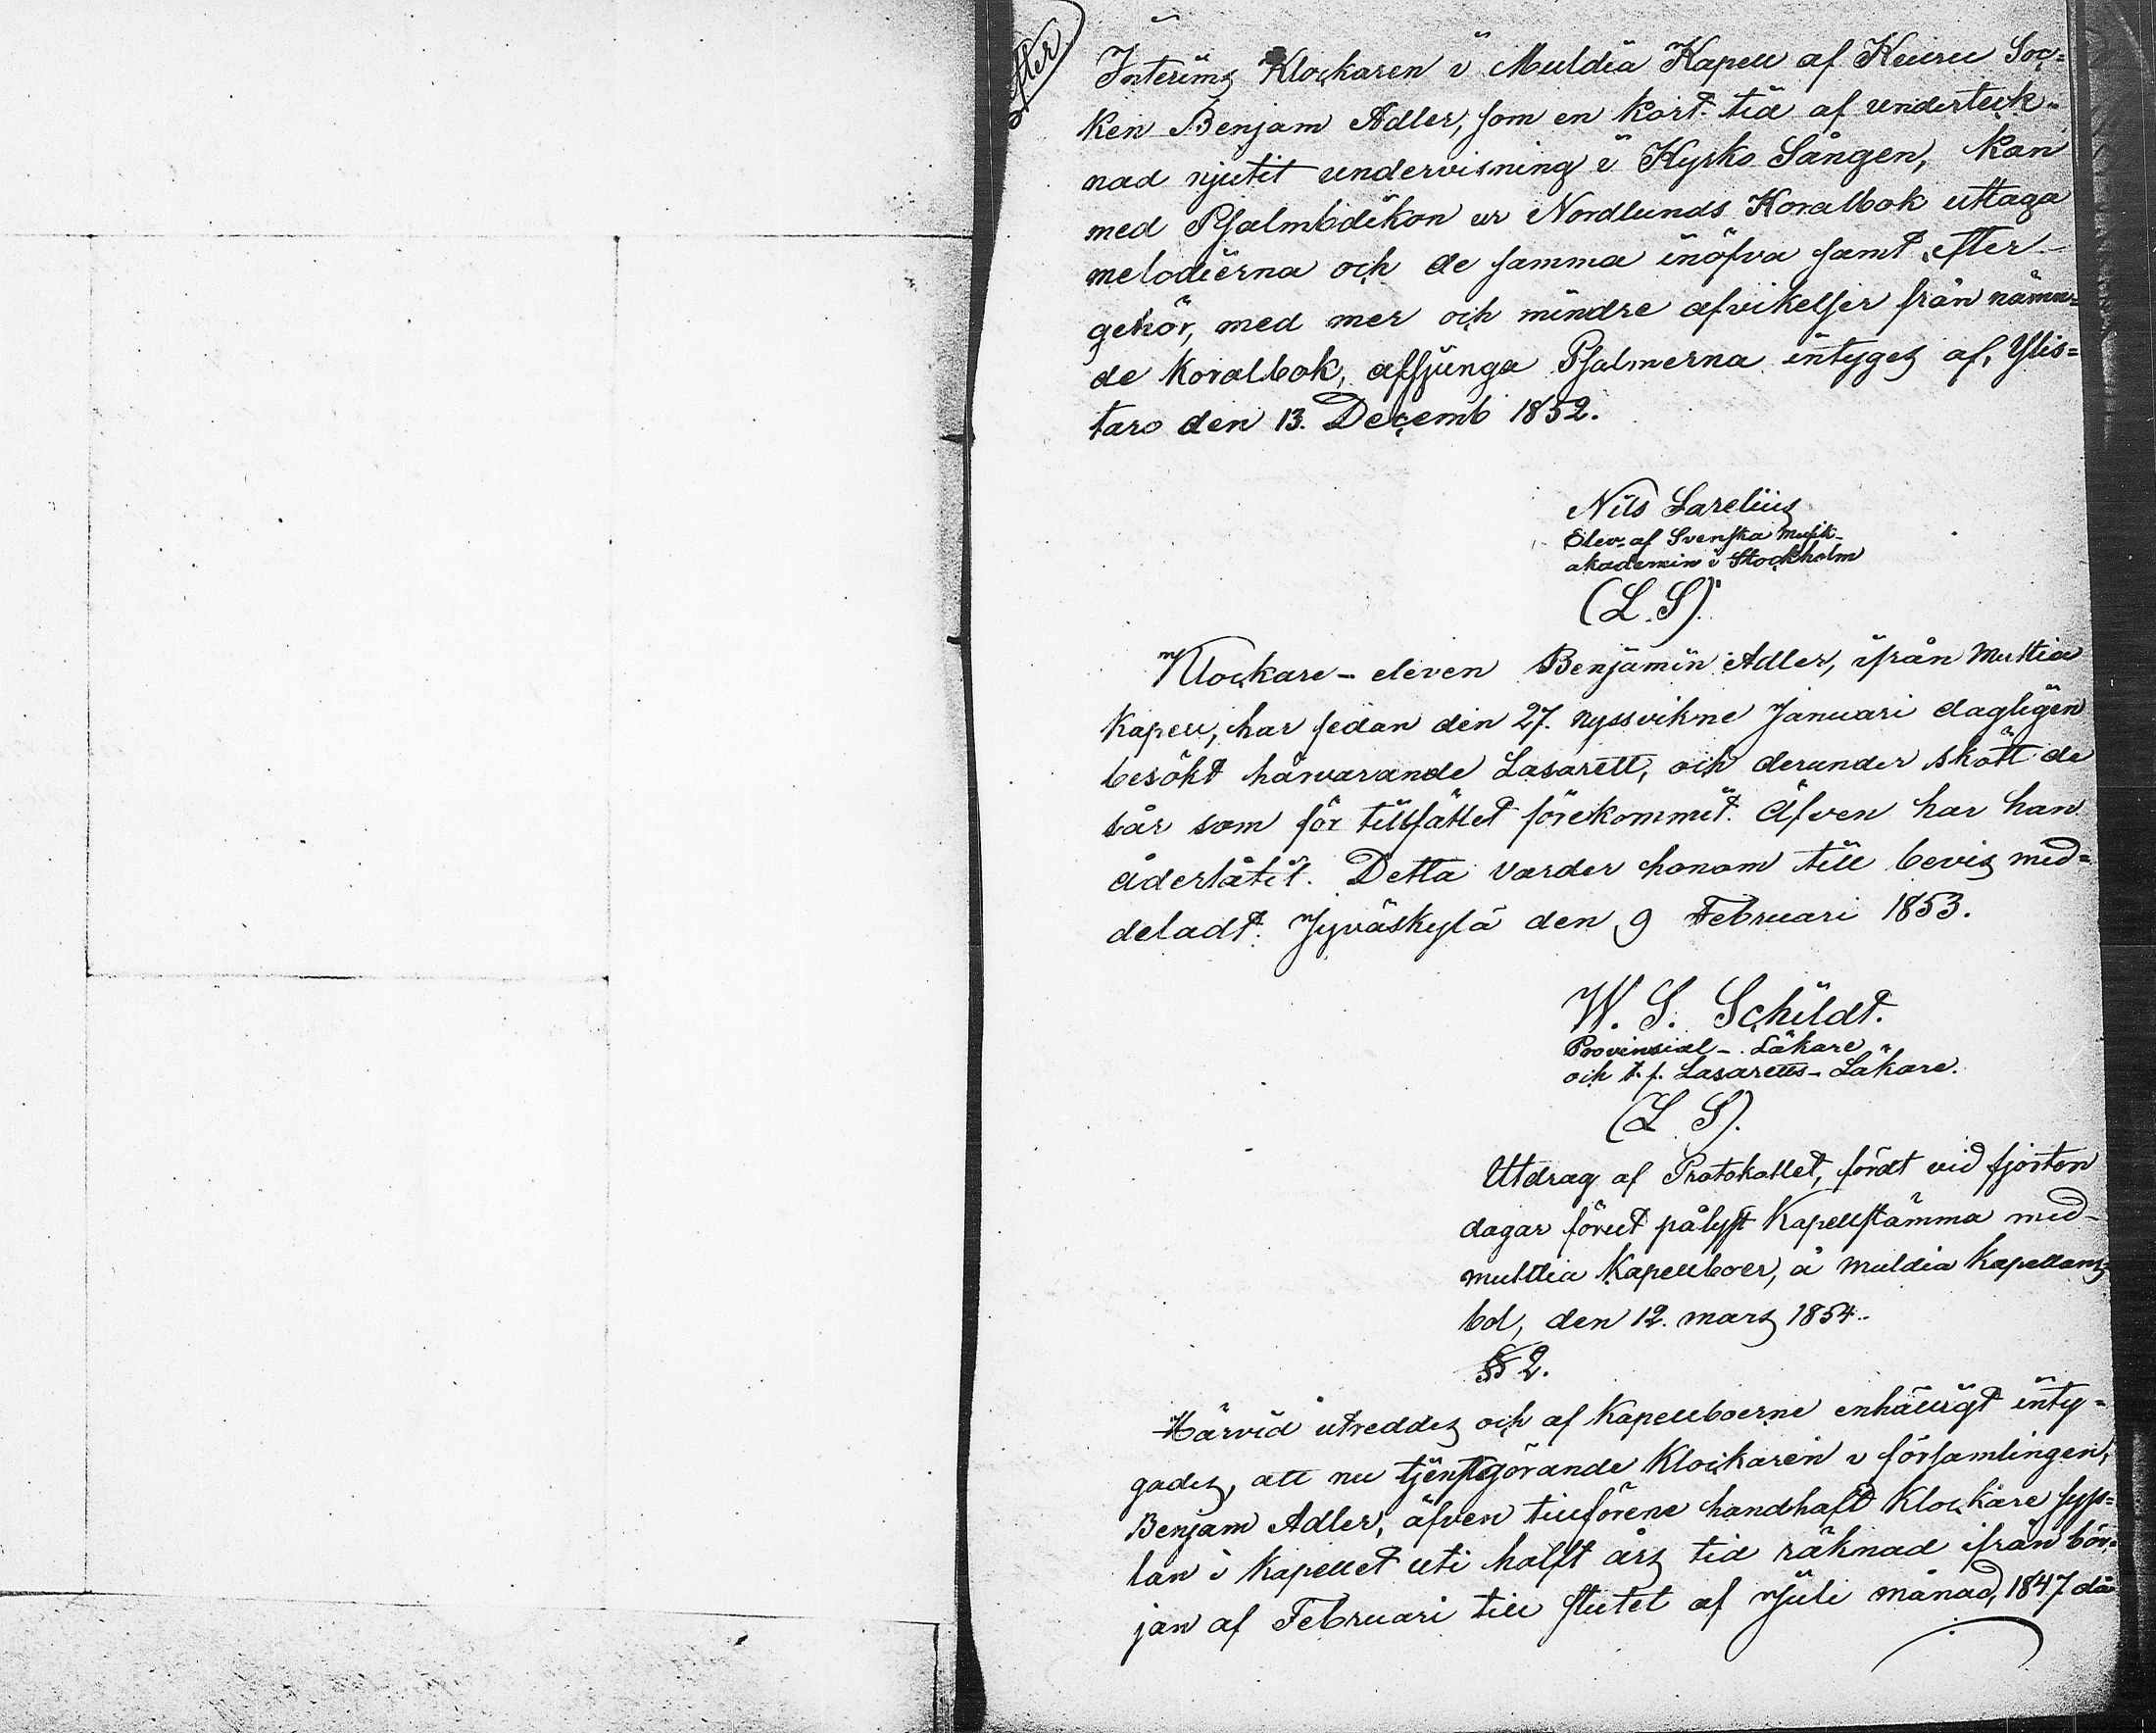 Interims Klockaren i Muldia Kapell af Keuru Soc=
ken Benjam Adler, som en kort tid af underteck=
nad njutit undervisning i Kyrko Sången, kan
med Psalmodikon ur Nordlunds Koralbok uttaga
melodierna och de samma inöfva samt efter
gehör, med mer och mindre afvikelser från nämn=
de Koralbok, afsjunga Psalmerna intygas af, Ylis=
taro den 13. Decemb 1852.
Nils Sarelius
Elev af Svenska Musik-
akademin i Stockholm
(L. S).
Klockare-eleven Benjamin Adler, ifrån Multia
Kapell, har sedan den 27. nyssvikne Januari dagligen
besökt härvarande Lasarett, och derunder skött de
sår som för tillfället förekommit. Äfven har han
åderlåtit. Detta varder honom till bevis med=
deladt. Jyväskylä den 9 Februari 1853.
W. S. Schildt.
Provinsial-Läkare
och t. f. Lasaretts-Läkare.
(L. S).
Utdrag af Protokollet, fördt vid fjorton
dagar förut pålyst Kapellstämma med
multia Kapellboer, å Muldia Kapellans
bol, den 12. mars 1854.
§ 2.
Härvid utreddes och af Kapellboerne enhälligt inty=
gades, att nu tjenstgörande Klockaren i församlingen,
Benjam Adler, äfven tillförene handhaft Klockare sys=
lan i Kapellet uti halft års tid räknad ifrån bör=
jan af Februari till slutet af Juli månad, 1847 då